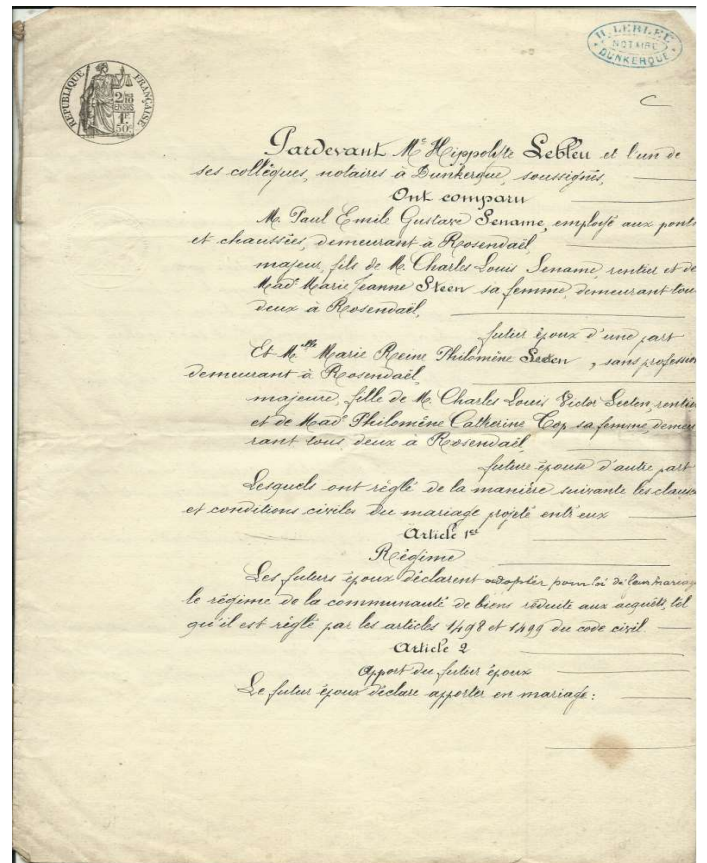 H. LEBLEU
NOTAIRE
DUNKERQUE
RÉPUBLIQUE FRANÇAISE
2/10 EN SUS
1F 50c
C
Pardevant Me Hippolyte Lebleu et l'un de
ses collègues, notaires à Dunkerque, soussignés,
Ont comparu
M. Paul Emile Gustave Sename, employé aux ponts
et chaussées, demeurant à Rosendaël,
majeur, fils de M. Charles Louis Sename, rentier et de
Made Marie Jeanne Steen sa femme, demeurant tous
deux à Rosendaël,
futur époux d'une part
Et Melle Marie Reine Philomène , sans profession
demeurant à Rosendaël,
majeure, fille de M. Charles Louis Victor , rentier
et de Made Philomène Catherine Cop sa femme, demeu
rant tous deux à Rosendaël
future épouse d'autre part
Lesquels ont réglé de la manière suivante les clauses
et conditions civiles du mariage projeté entr'eux
Article 1er
Régime
Les futurs époux déclarent adopter pour loi de leur mariage
le régime de la communauté de biens réduite aux acquêts, tel
qu'il est réglé par les articles 1498 et 1499 du code civil.
Article 2
Apport du futur époux
Le futur époux déclare apporter en mariage: